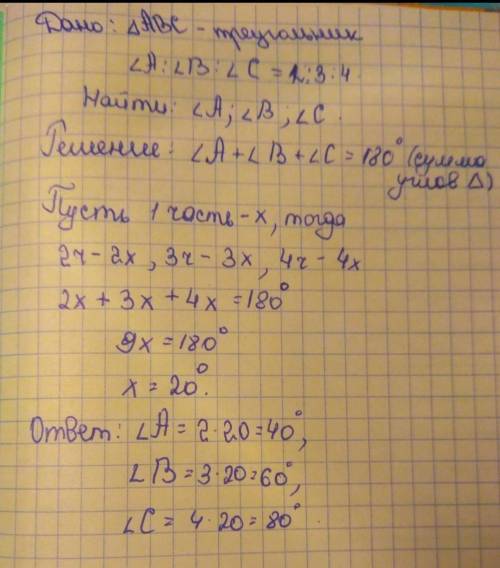 Дано: △ABC - треугольник
∠A:∠B:∠C = 2:3:4.
Найти: ∠A; ∠B; ∠C.
Решение: ∠A+∠B+∠C=180° (сумма
углов △)
Пусть 1 часть - x, тогда
2ч - 2x, 3ч - 3x, 4ч - 4x
2x + 3x + 4x = 180°
9x = 180°
x = 20°.
Ответ: ∠A = 2·20=40°,
∠B = 3·20=60°,
∠C = 4·20=80°.